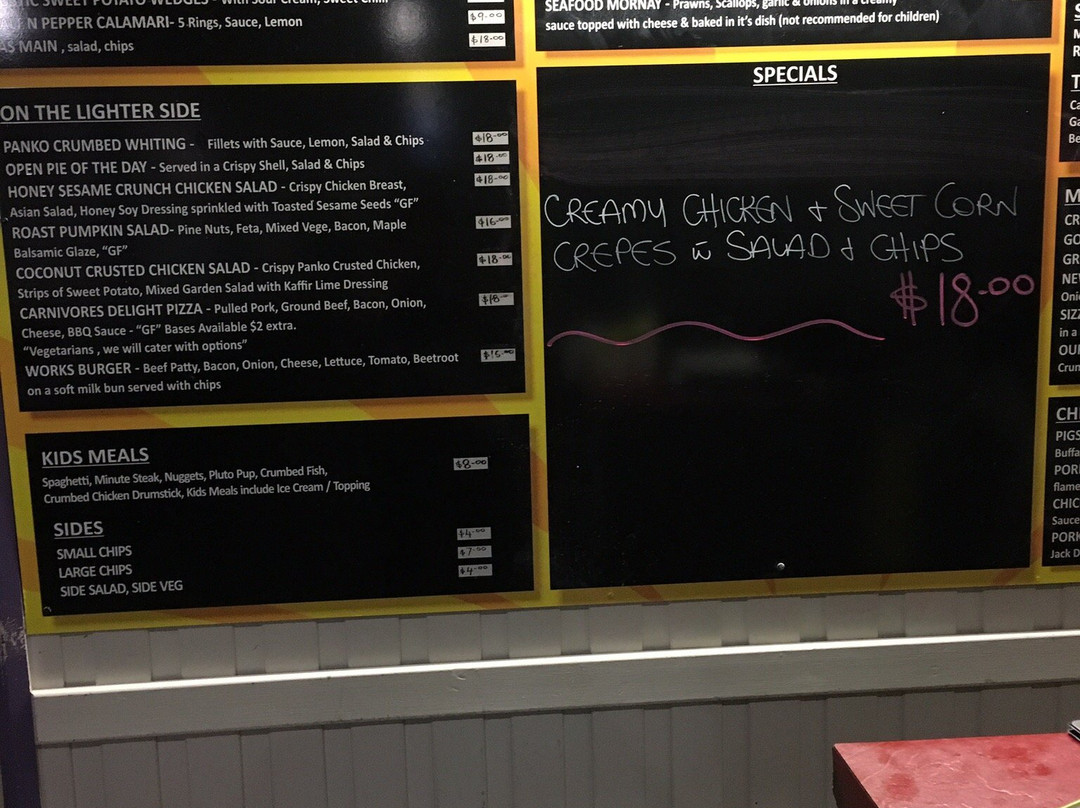 SWEET POTATO WEDGES - With Sour Cream, Sweet
N PEPPER CALAMARI- 5 Rings, Sauce, Lemon $9.00
AS MAIN , salad, chips $18-00
ON THE LIGHTER SIDE
PANKO CRUMBED WHITING - Fillets with Sauce, Lemon, Salad & Chips $18-00
OPEN PIE OF THE DAY - Served in a Crispy Shell, Salad & Chips $18-00
HONEY SESAME CRUNCH CHICKEN SALAD - Crispy Chicken Breast, $18-00
Asian Salad, Honey Soy Dressing sprinkled with Toasted Sesame Seeds "GF"
ROAST PUMPKIN SALAD- Pine Nuts, Feta, Mixed Vege, Bacon, Maple $16-00
Balsamic Glaze, "GF"
COCONUT CRUSTED CHICKEN SALAD - Crispy Panko Crusted Chicken, $18-00
Strips of Sweet Potato, Mixed Garden Salad with Kaffir Lime Dressing
CARNIVORES DELIGHT PIZZA - Pulled Pork, Ground Beef, Bacon, Onion, $18-00
Cheese, BBQ Sauce - "GF" Bases Available $2 extra.
"Vegetarians , we will cater with options"
WORKS BURGER - Beef Patty, Bacon, Onion, Cheese, Lettuce, Tomato, Beetroot $15-00
on a soft milk bun served with chips
KIDS MEALS
Spaghetti, Minute Steak, Nuggets, Pluto Pup, Crumbed Fish, $8-00
Crumbed Chicken Drumstick, Kids Meals include Ice Cream / Topping
SIDES
SMALL CHIPS $4-00
LARGE CHIPS $7-50
SIDE SALAD, SIDE VEG $4-00
SEAFOOD MORNAY - Prawns, Scallops, garlic & onions in a creamy
sauce topped with cheese & baked in it's dish (not recommended for children)
SPECIALS
CREAMY CHICKEN & SWEET CORN
CREPES w SALAD & CHIPS
$18-00
CR
GO
GR
NE
Oni
SIZZ
in a
OU
Crun
CH
PIGS
Buffa
PORK
flame
CHIC
Sauce
PORK
Jack D